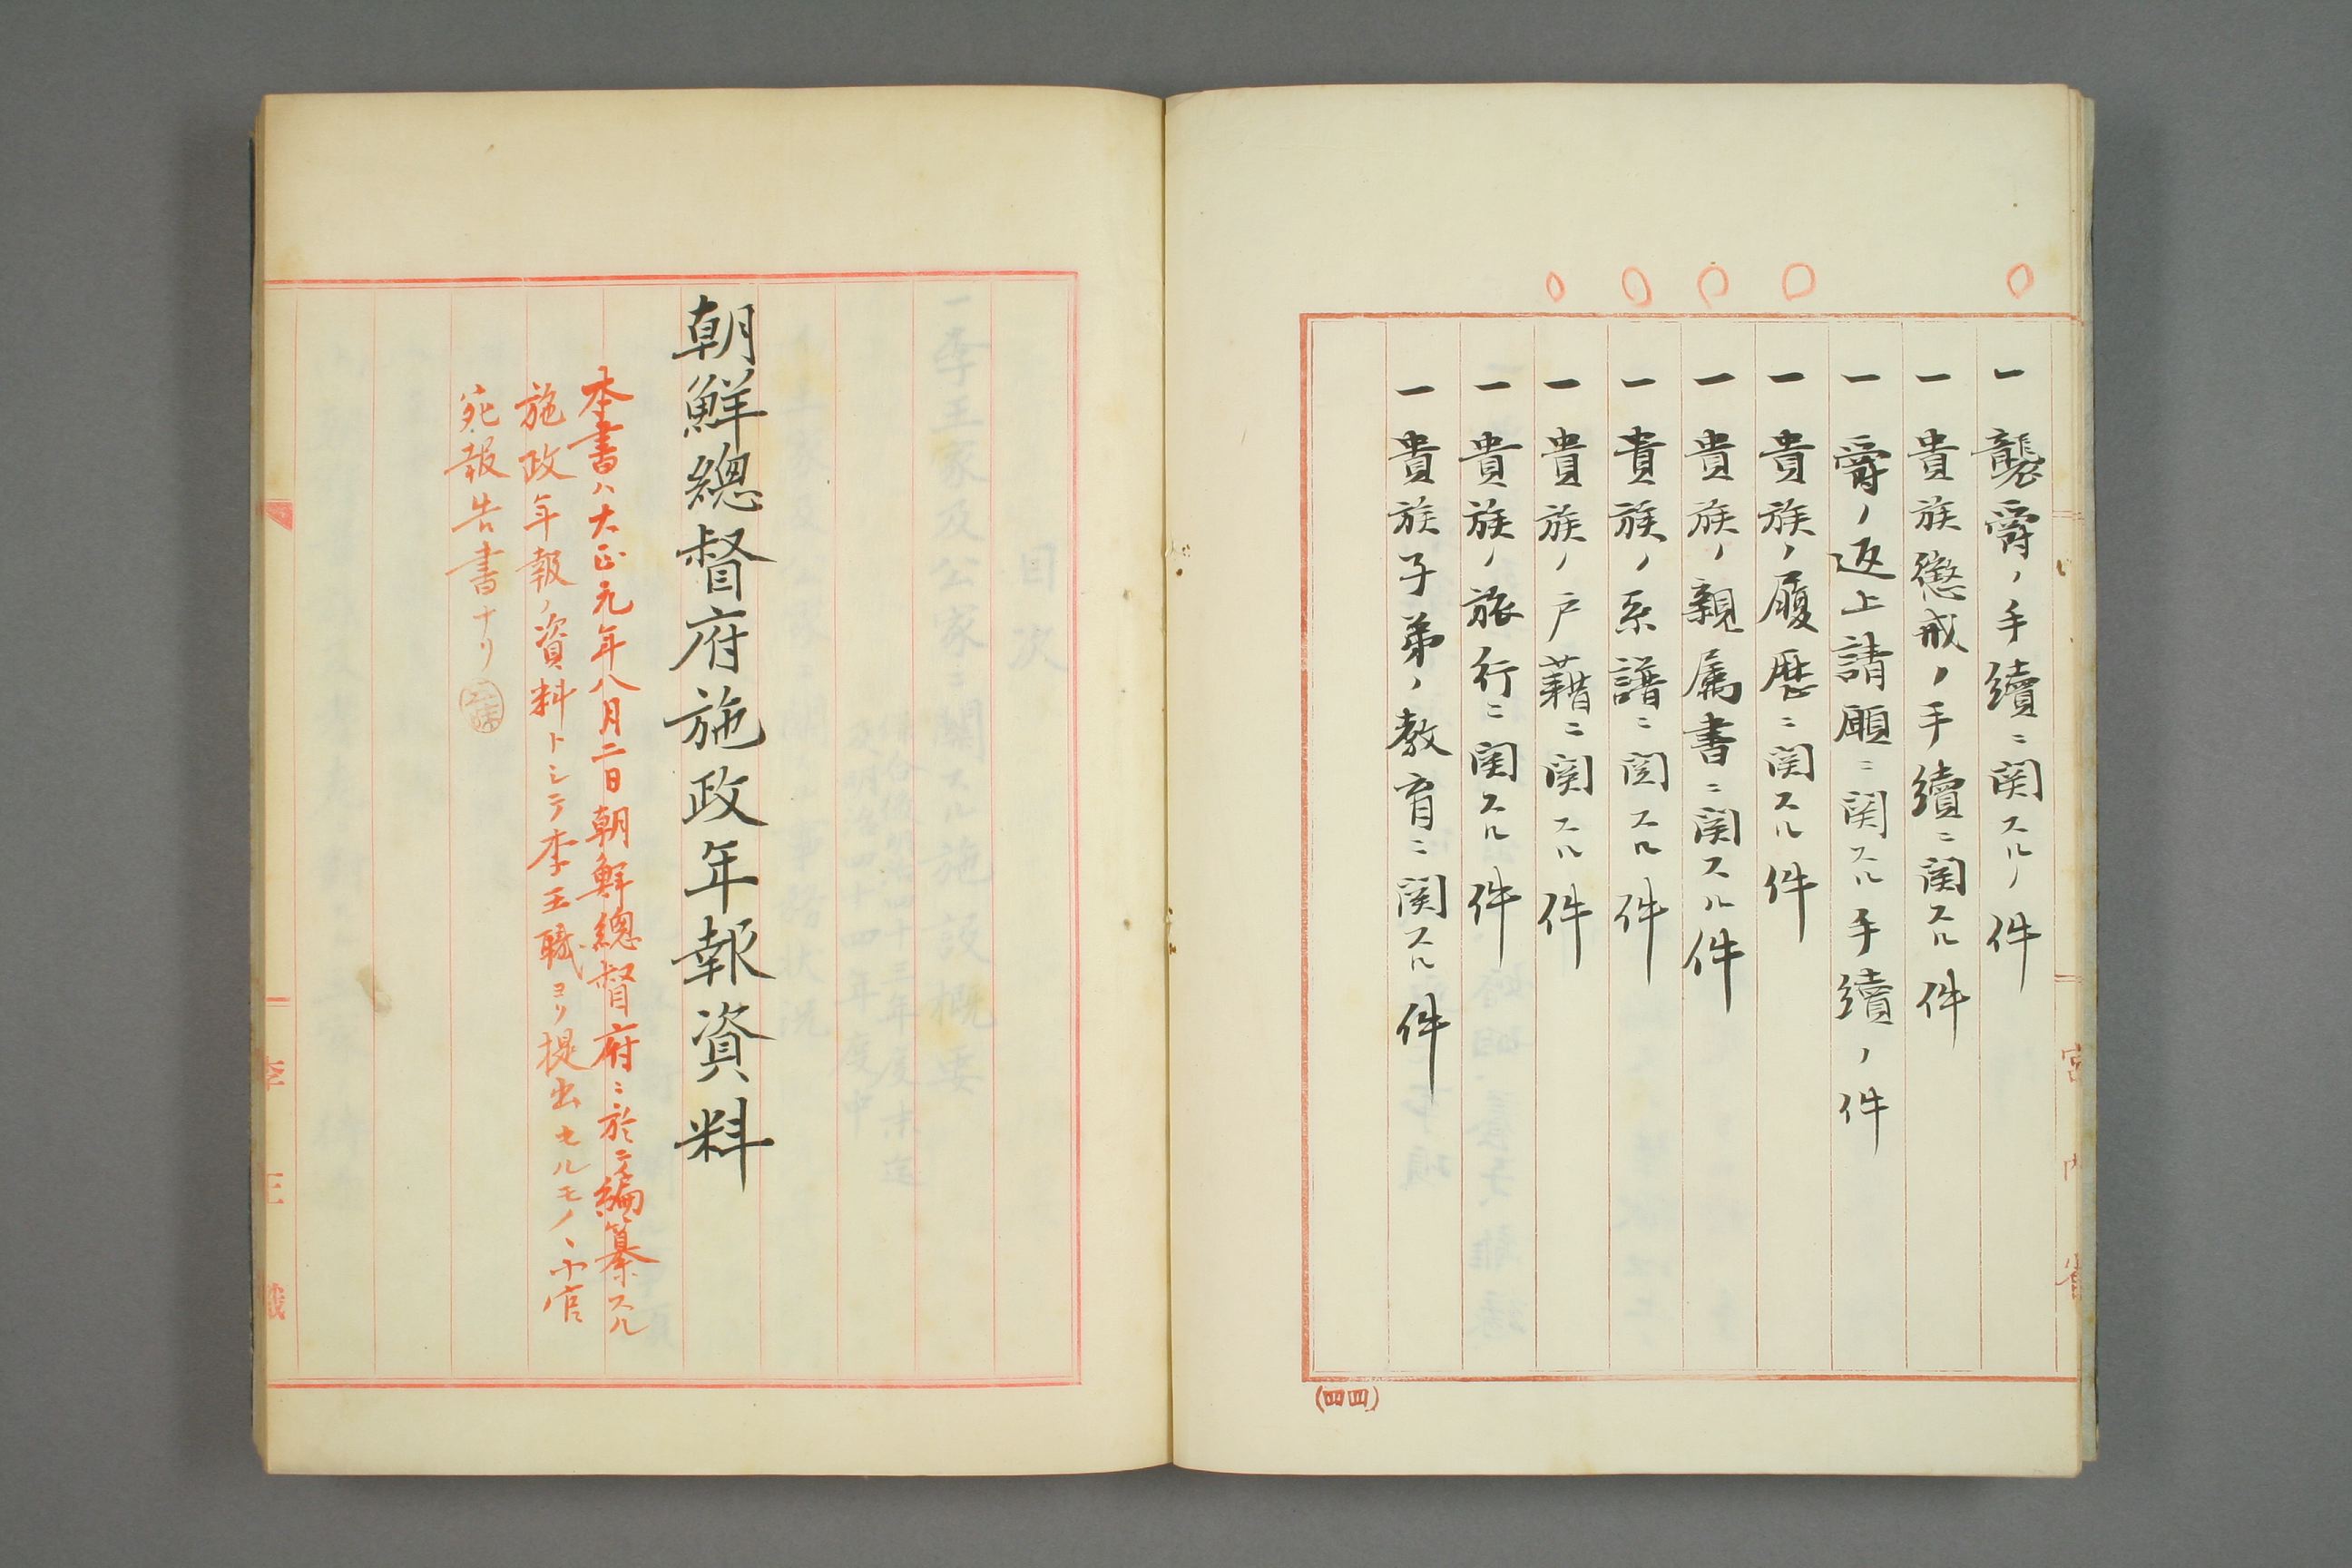 一 襲爵ノ手續ニ関スルノ件
一 貴族懲戒ノ手續ニ関スル件
一 爵ノ返上請願ニ関スル手續ノ件
一 貴族ノ履歴ニ関スル件
一 貴族ノ親属書ニ関スル件
一 貴族ノ系譜ニ関スル件
一 貴族ノ戸藉ニ関スル件
一 貴族ノ旅行ニ関スル件
一 貴族子弟ノ教育ニ関スル件
宮内省
(四四)
朝鮮總督府施政年報資料
本書ハ大正元年八月二日朝鮮總督府ニ於テ編纂スル
施政年報ノ資料トシテ李王職ヨリ提出セルモノニ小官
宛報告書ナリ
李王職